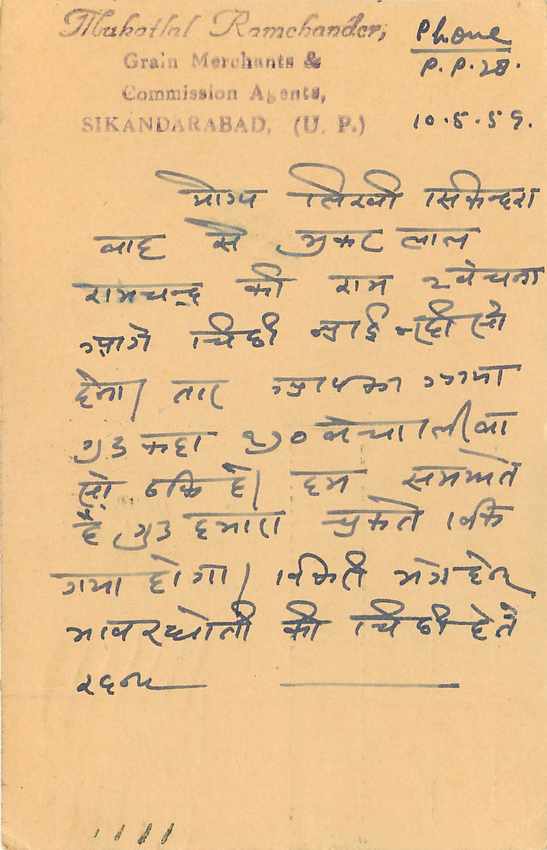 Mukatlal Ramchander,
Grain Merchants &
Commission Agents,
SIKANDARABAD, (U. P.)
Phone
P.P. 28.
10.5.59.
योग्य लिखी सिकन्द्रा
बाद से मुकट लाल
रामचन्द्र की राम २ बेचना
आगे चिठी आई नही सो
देना। तार आपका आया
गुड़ कहा २)० बेचा लीवा
सो ठीक है। हम समझते
है गुड़ हमारा
गया होगा।
भाव की चिठी देते
रहना